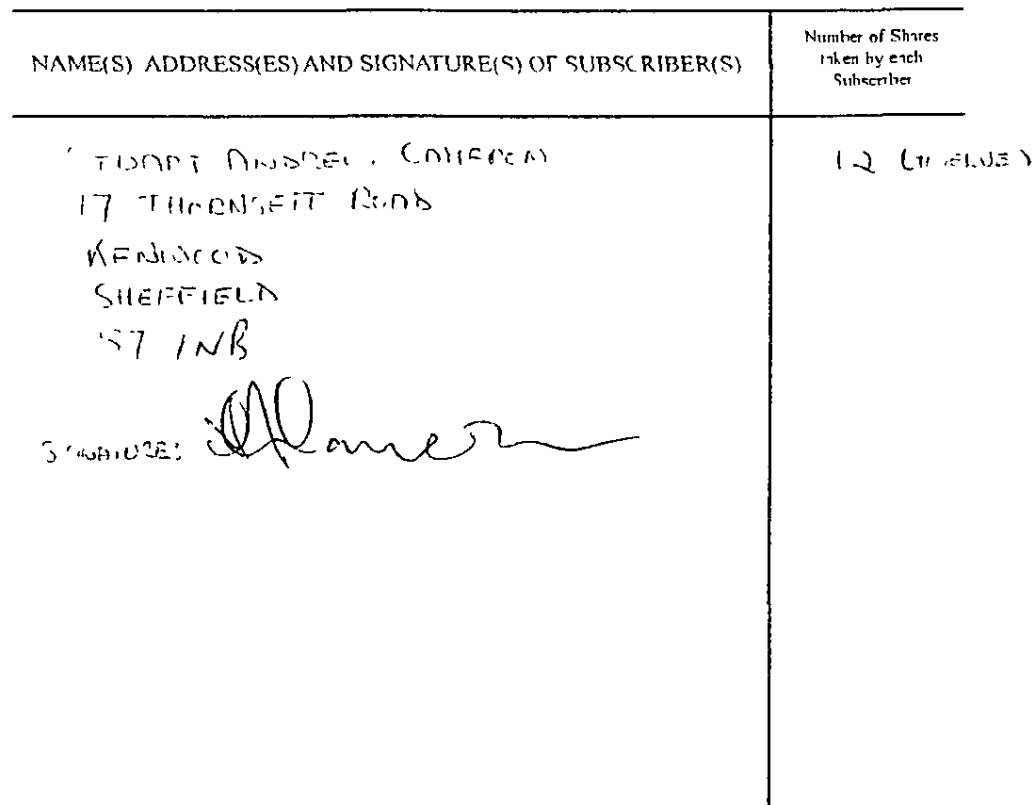 NAME(S) ADDRESS(ES) AND SIGNATURE(S) OF SUBSCRIBER(S)
Number of Shares
taken by each
Subscriber
STUART ANDREW CAMERON
12 (TWELVE)
17 THORNSETT ROAD
KENWOOD
SHEFFIELD
S7 1NB
SIGNATURE: Cameron